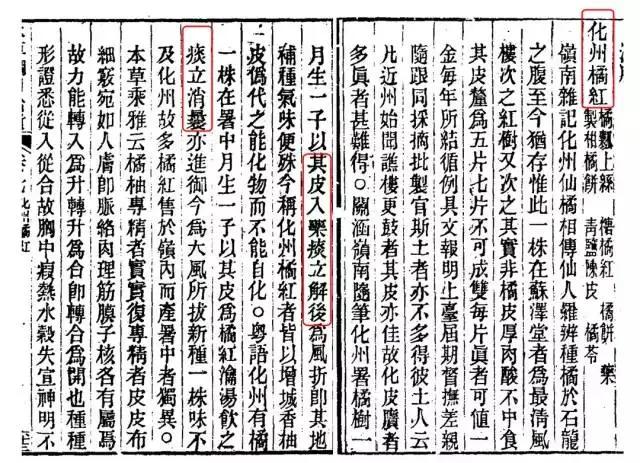 化州橘紅 橘瓤上絲 橘紅 橘餅 藥製柑橘餅 青鹽陳皮 橘苓
嶺南雜記化州仙橘相傳仙人羅辨種橘於石龍
之腹至今猶存惟此一株在蘇澤堂者為最淸風
樓次之紅樹又次之其實非橘皮厚肉酸不中食
其皮釐為五片七片不可成雙每片眞者可値一
金每年所結循例具文報明上臺屆期督撫差親
隨跟同採摘批製官斯土者亦不多得彼土人云
凡近州始聞譙樓更鼓者其皮亦佳故化皮贋者
多眞者甚難得○關涵嶺南隨筆化州署橘樹一
月生一子以其皮入藥痰立解後為風折即其地
補種氣味便殊今稱化州橘紅者皆以增城香柚
皮僞代之能化物而不能自化○粵語化州有橘
一株在署中月生一子以其皮為橘紅瀹湯飮之
痰立消曩亦進御今為大風所拔新種一株味不
及化州故多橘紅售於嶺內而產署中者獨異○
本草乘雅云橘柚專精者實實復專精者皮皮布
細竅宛如人膚即脈絡肉理筋膜子核各有屬焉
故力能轉入為升轉升為合即轉合為開也種種
形證悉從入從合故胸中瘕熱水穀失宣神明不